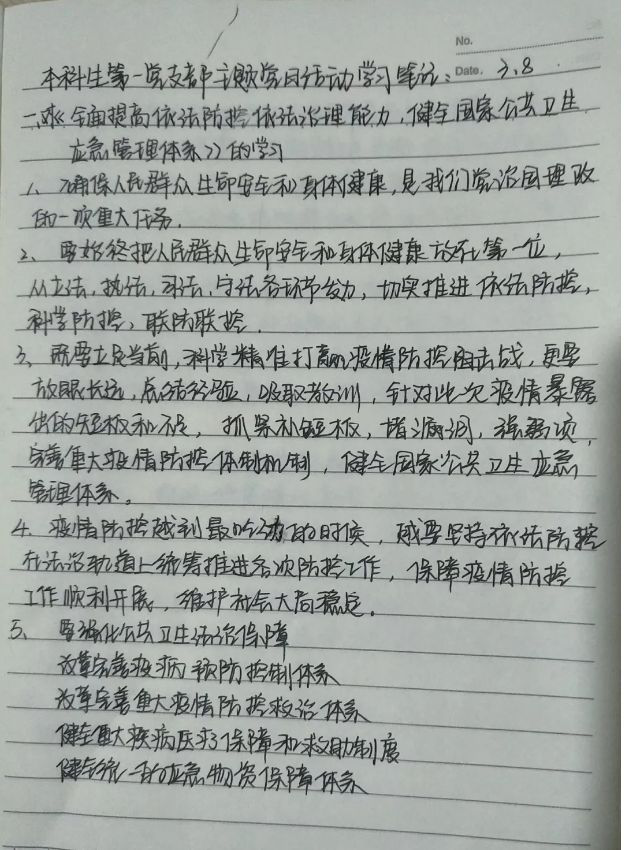 No.
本科生第一党支部主题党日活动学习笔记: Date. 3.8
一.《全面提高依法防控依法治理能力,健全国家公共卫生
应急管理体系》的学习
1、确保人民群众生命安全和身体健康,是我们党治国理政
的一项重大任务.
2、要始终把人民群众生命安全和身体健康放在第一位,
从立法,执法,司法,守法各环节发力,切实推进依法防控,
科学防控,联防联控.
3、既要立足当前,科学精准打赢疫情防控阻击战,更要
放眼长远,总结经验,吸取教训,针对此次疫情暴露
出的短板和不足,抓紧补短板,堵漏洞,强弱项,
完善重大疫情防控体制机制,健全国家公共卫生应急
管理体系。
4、疫情防控越到最吃劲的时候,越要坚持依法防控
在法治轨道上统筹推进各项防控工作,保障疫情防控
工作顺利开展,维护社会大局稳定.
5、要强化公共卫生法治保障
改革完善疾病预防控制体系
改革完善重大疫情防控救治体系
健全重大疾病医疗保障和救助制度
健全统一的应急物资保障体系